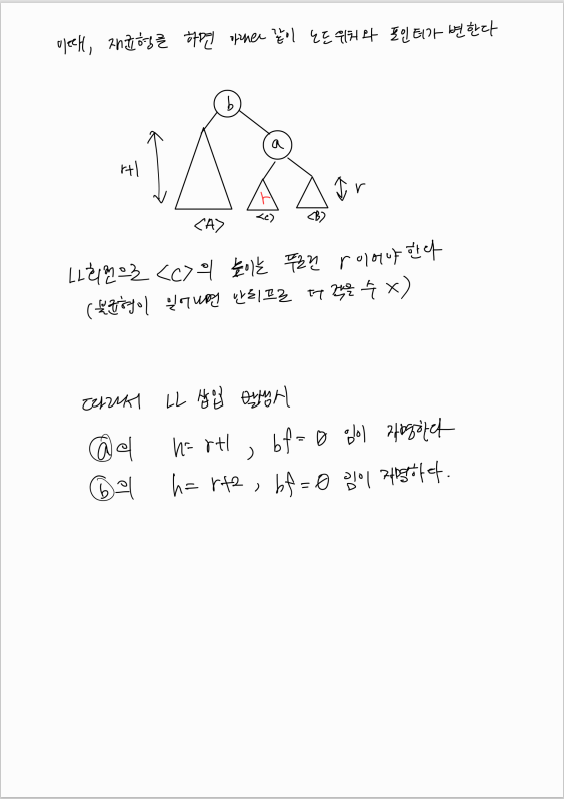 이때, 재균형을 하면 아래와 같이 노드위치와 포인터가 변한다
b
a
r+1
r
r
<A>
<C>
<B>
LL회전으로 <C>의 높이는 무조건 r이어야 한다
(불균형이 일어나면 안되므로 더 작을 수 X)
따라서 LL 삽입 발생시
ⓐ의 h= r+1, bf= 0 임이 자명한다
ⓑ의 h= r+2, bf = 0 임이 자명하다.